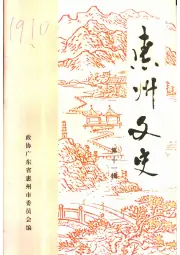 1910
惠州文史
第十辑
政协广东省惠州市委员会编